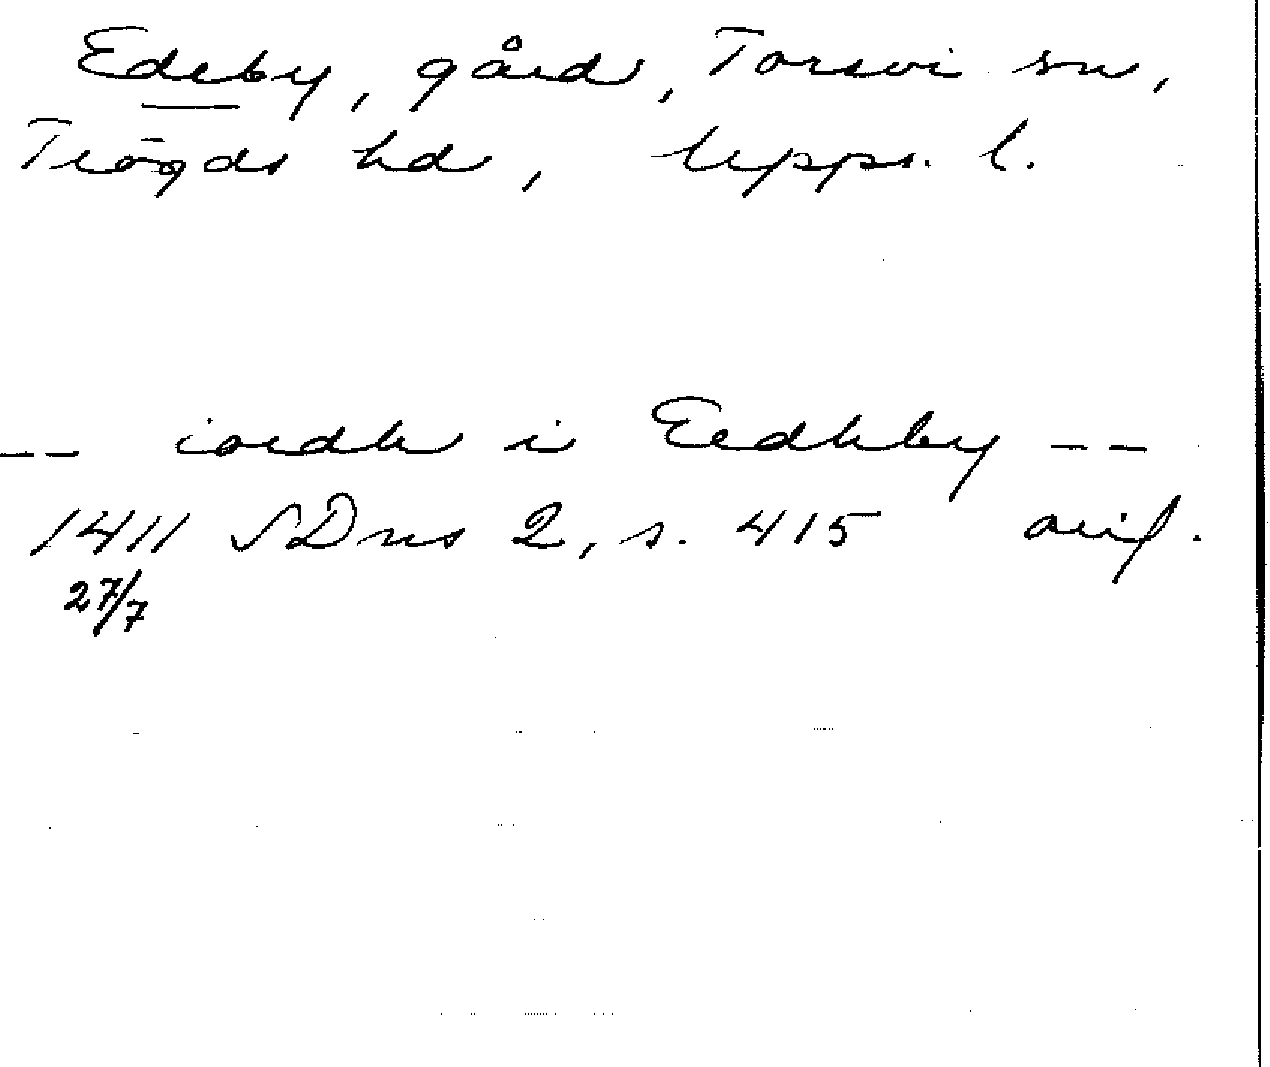 Edeby, gård, Torsvi sn,
Trögds hd, Upps. l.
-- iordh i Eedhby --
1411 SDns 2, s. 415 avsf.
27/7